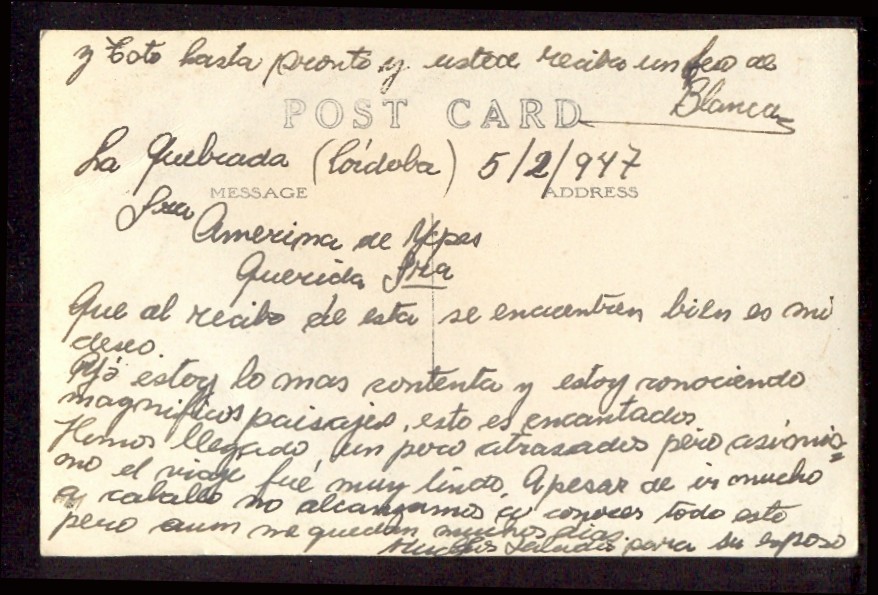 y Toto hasta pronto y usted reciba un beso de
Blanca
POST CARD
La Quebrada (Córdoba) 5/2/947
MESSAGE ADDRESS
Sra
Amerina de Yepes
Querida Sra
Que al recibo de esta se encuentren bien es mi
deseo.
Yo estoy lo mas contenta y estoy conociendo
magnificos paisajes, esto es encantador
Hemos llegado un poco atrasados pero asimis=
mo el viaje fué muy lindo. Apesar de ir mucho
a caballo no alcanzamos a conocer todo esto
pero aum me quedan muchos dias.
Muchos saludos para su esposo